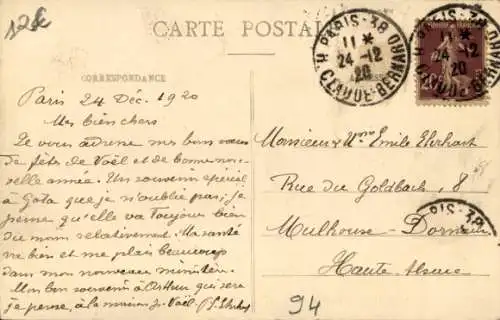 12€
CARTE POSTALE
PARIS - 38
11 *
24 - 12
20
R. CLAUDE-BERNARD
CORRESPONDANCE
Paris 24 Déc. 1920
Mes bien chers
Je vous adresse mes bons vœux
de fête de Noël et de bonne nou-
velle année. Un souvenir spécial
à Gota que je n'oublie pas; je
pense qu'elle va toujours bien
du moins relativement. Ma santé
va bien et me plais beaucoup
dans mon nouveau
Mon bon souvenir à Arthur qui sera
je pense, à la maison p. Noël.
Monsieur & Mme Emile Ehrhart
Rue du Goldbach, 8
Mulhouse - Dornach
Haute Alsace
94